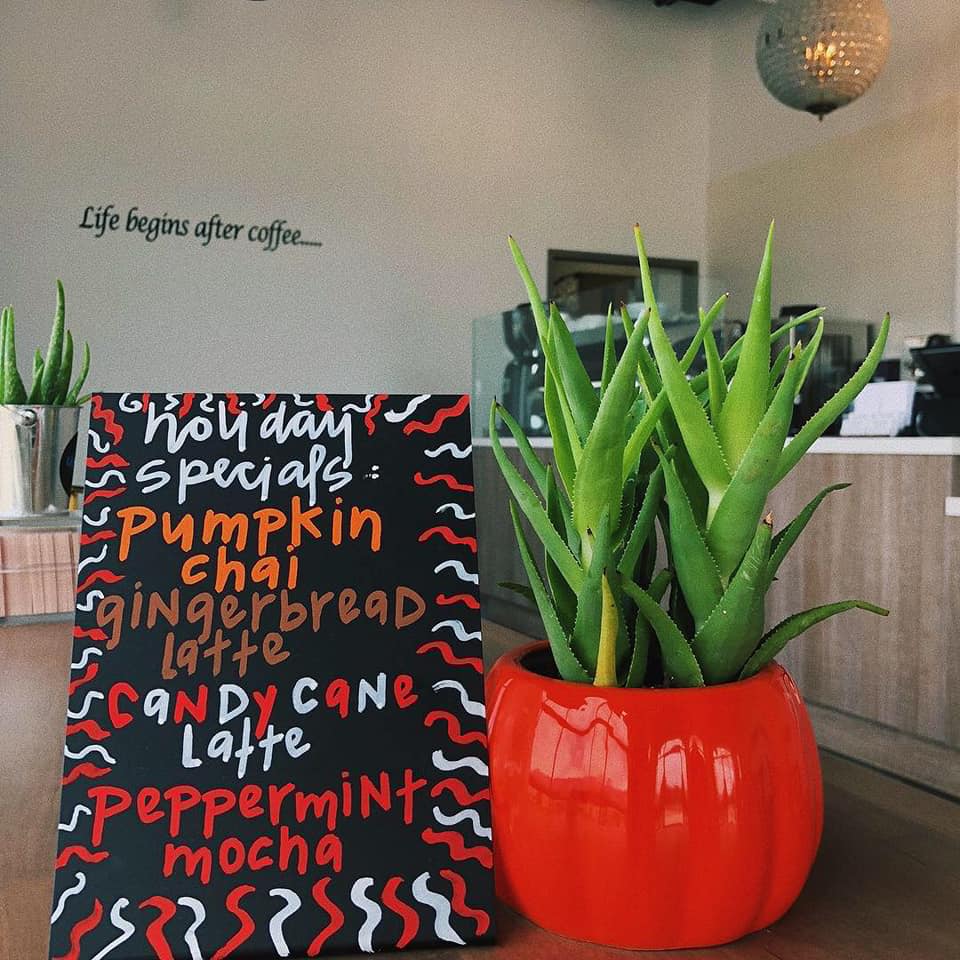 Life begins after coffee.....
holiday
specials:
pumpkin
chai
gingerbread
latte
candy cane
latte
peppermint
mocha